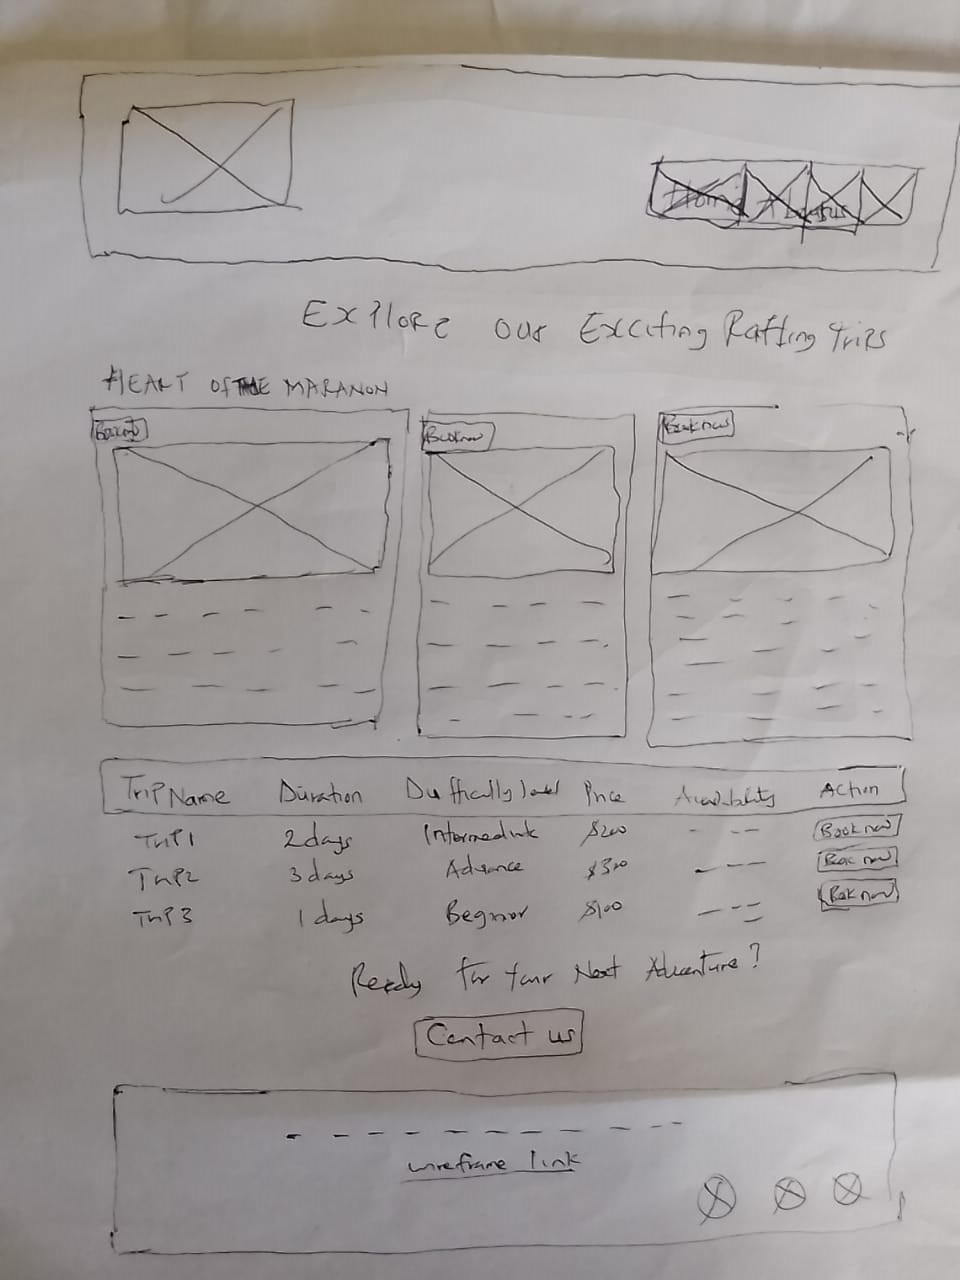 Home About us
Explore our Exciting Rafting trips
HEART OF THE MARANON
Book now Book now Book now
Trip Name Duration Difficulty level Price Availability Action
Trip1 2 days Intermediate $200 Book now
Trip2 3 days Advance $300 Book now
Trip3 1 days Beginner $100 Book now
Ready for your Next Adventure?
Contact us
wireframe link